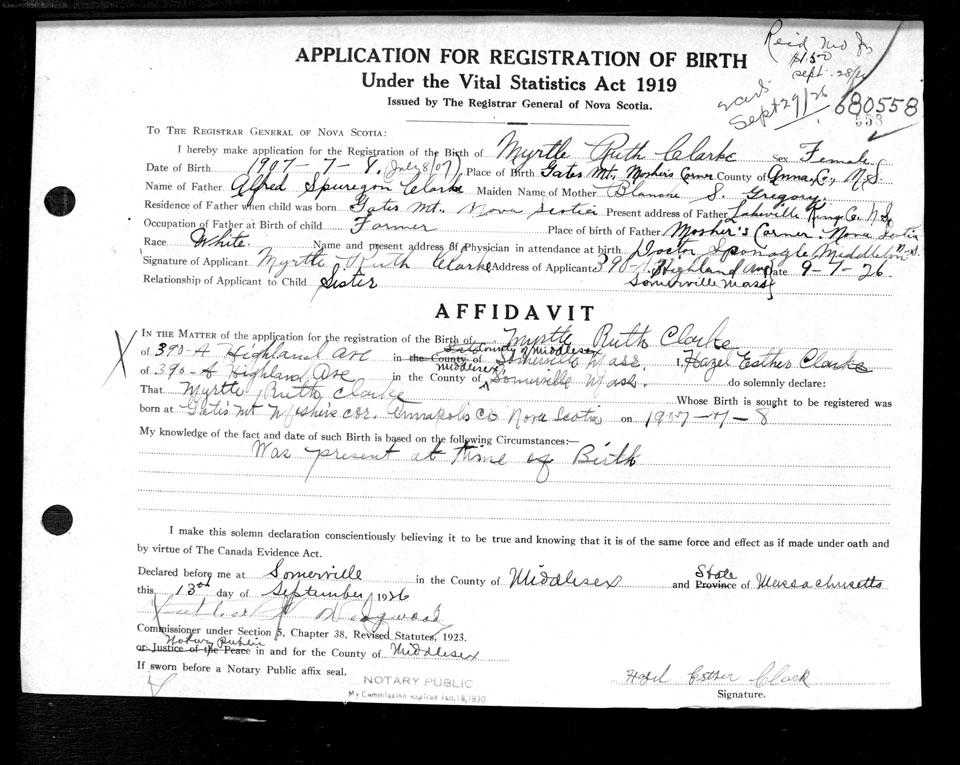 APPLICATION FOR REGISTRATION OF BIRTH
Under the Vital Statistics Act 1919
Issued by The Registrar General of Nova Scotia.
$1.50
Sept. 28/26
Sept 29/26
680558
558
TO THE REGISTRAR GENERAL OF NOVA SCOTIA:
I hereby make application for the Registration of the Birth of Myrtle Ruth Clarke Sex Female
Date of Birth 1907-7-8, (July 8/07) Place of Birth Gates Mt. Mosher's Corner County of Anna. Co., N.S.
Name of Father Alfred Spuregon Clarke Maiden Name of Mother Blanche S. Gregory
Residence of Father when child was born Gates Mt., Nova Scotia Present address of Father Lakeville Kings Co. N.S.
Occupation of Father at Birth of child Farmer Place of birth of Father Mosher's Corner. Nova Scotia
Race White. Name and present address of Physician in attendance at birth Doctor Sponagle, Middleton N.S.
Signature of Applicant Myrtle Ruth Clarke Address of Applicant 390-A Highland Ave Date 9-7-26
Relationship of Applicant to Child Sister Somerville Mass
AFFIDAVIT
IN THE MATTER of the application for the registration of the Birth of Myrtle Ruth Clarke
of 390-A Highland Ave in the County of County of Middlesex Somerville Mass. I, Hazel Esther Clarke
of 390-A Highland Ave in the County of Middlesex Somerville Mass. do solemnly declare:
That Myrtle Ruth Clarke Whose Birth is sought to be registered was
born at Gates Mt Moshers Cor. Annapolis Co Nova Scotia on 1907-7-8
My knowledge of the fact and date of such Birth is based on the following Circumstances:—
Was present at time of Birth
I make this solemn declaration conscientiously believing it to be true and knowing that it is of the same force and effect as if made under oath and
by virtue of The Canada Evidence Act.
Declared before me at Somerville in the County of Middlesex and Province State of Massachusetts
this 13th day of September 1926
Commissioner under Section 5, Chapter 38, Revised Statutes, 1923.
Notary Public
or Justice of the Peace in and for the County of Middlesex
If sworn before a Notary Public affix seal.
NOTARY PUBLIC
My Commission expires Jan. 18, 1930
Hazel Esther Clark
Signature.